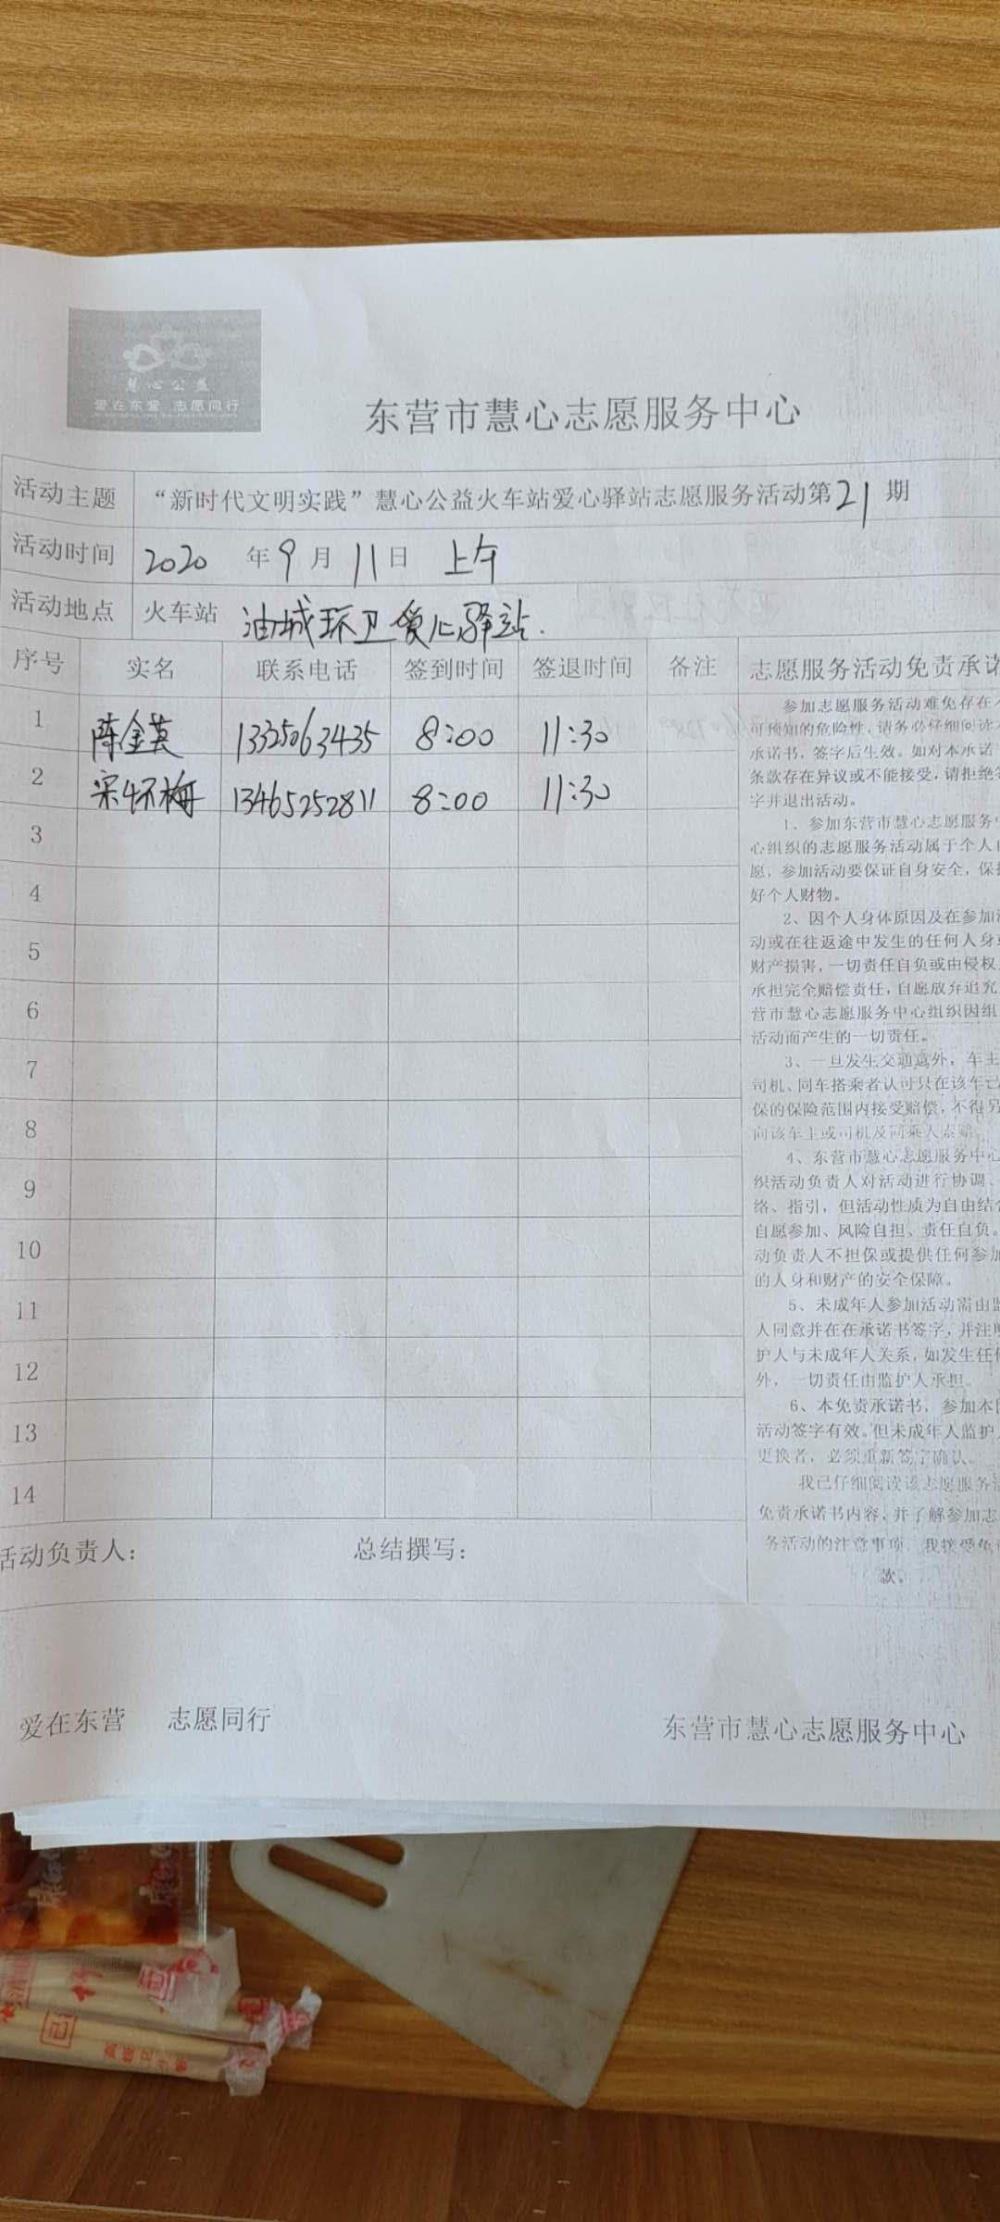 慧心公益
爱在东营 志愿同行
东营市慧心志愿服务中心
活动主题 “新时代文明实践”慧心公益火车站爱心驿站志愿服务活动第21期
活动时间 2020 年9月11日 上午
活动地点 火车站 油城环卫爱心驿站.
序号 实名 联系电话 签到时间 签退时间 备注 志愿服务活动免责承诺
1 陈金英 13325063435 8:00 11:30
2 宋怀梅 13465252811 8:00 11:30
3
4
5
6
7
8
9
10
11
12
13
14
参加志愿服务活动难免存在
可预知的危险性，请务必仔细阅读
承诺书，签字后生效。如对本承诺
条款存在异议或不能接受，请拒绝
字并退出活动。
1、参加东营市慧心志愿服务
心组织的志愿服务活动属于个人
愿，参加活动要保证自身安全，保
好个人财物。
2、因个人身体原因及在参加
动或在往返途中发生的任何人身
财产损害，一切责任自负或由侵权
承担完全赔偿责任，自愿放弃追究
营市慧心志愿服务中心组织因组
活动而产生的一切责任。
3、一旦发生交通意外，车主
司机、同车搭乘者认可只在该车
保的保险范围内接受赔偿，不得另
向该车主或司机及同乘人索赔。
4、东营市慧心志愿服务中心
织活动负责人对活动进行协调、
络、指引，但活动性质为自由结合
自愿参加、风险自担、责任自负。
动负责人不担保或提供任何参加
的人身和财产的安全保障。
5、未成年人参加活动需由监
人同意并在在承诺书签字，并注明
护人与未成年人关系，如发生任何
外，一切责任由监护人承担。
6、本免责承诺书，参加本
活动签字有效。但未成年人监护
更换者，必须重新签字确认。
我已仔细阅读该志愿服务活
免责承诺书内容，并了解参加志
务活动的注意事项，我接受免
款。
活动负责人： 总结撰写：
爱在东营 志愿同行 东营市慧心志愿服务中心